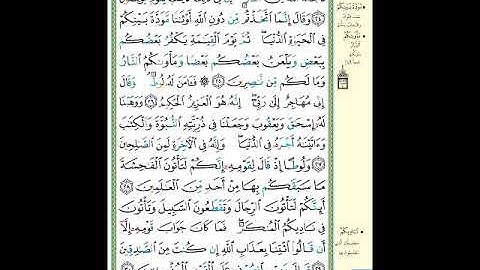 وَقَالَ إِنَّمَا ٱتَّخَذْتُم مِّن دُونِ ٱللَّهِ أَوْثَـٰنًا مَّوَدَّةَ بَيْنِكُمْ
فِى ٱلْحَيَوٰةِ ٱلدُّنْيَا ۖ ثُمَّ يَوْمَ ٱلْقِيَـٰمَةِ يَكْفُرُ بَعْضُكُم
بِبَعْضٍ وَيَلْعَنُ بَعْضُكُم بَعْضًا وَمَأْوَىٰكُمُ ٱلنَّارُ
وَمَا لَكُم مِّن نَّـٰصِرِينَ ٢٥ ۞ فَـَٔامَنَ لَهُۥ لُوطٌ ۘ وَقَالَ
إِنِّى مُهَاجِرٌ إِلَىٰ رَبِّىٓ ۖ إِنَّهُۥ هُوَ ٱلْعَزِيزُ ٱلْحَكِيمُ ٢٦ وَوَهَبْنَا
لَهُۥٓ إِسْحَـٰقَ وَيَعْقُوبَ وَجَعَلْنَا فِى ذُرِّيَّتِهِ ٱلنُّبُوَّةَ وَٱلْكِتَـٰبَ
وَءَاتَيْنَـٰهُ أَجْرَهُۥ فِى ٱلدُّنْيَا ۖ وَإِنَّهُۥ فِى ٱلْـَٔاخِرَةِ لَمِنَ ٱلصَّـٰلِحِينَ
٢٧ وَلُوطًا إِذْ قَالَ لِقَوْمِهِۦٓ إِنَّكُمْ لَتَأْتُونَ ٱلْفَـٰحِشَةَ
مَا سَبَقَكُم بِهَا مِنْ أَحَدٍ مِّنَ ٱلْعَـٰلَمِينَ ٢٨
أَئِنَّكُمْ لَتَأْتُونَ ٱلرِّجَالَ وَتَقْطَعُونَ ٱلسَّبِيلَ وَتَأْتُونَ
فِى نَادِيكُمُ ٱلْمُنكَرَ ۖ فَمَا كَانَ جَوَابَ قَوْمِهِۦٓ إِلَّآ
أَن قَالُوا۟ ٱئْتِنَا بِعَذَابِ ٱللَّهِ إِن كُنتَ مِنَ ٱلصَّـٰدِقِينَ